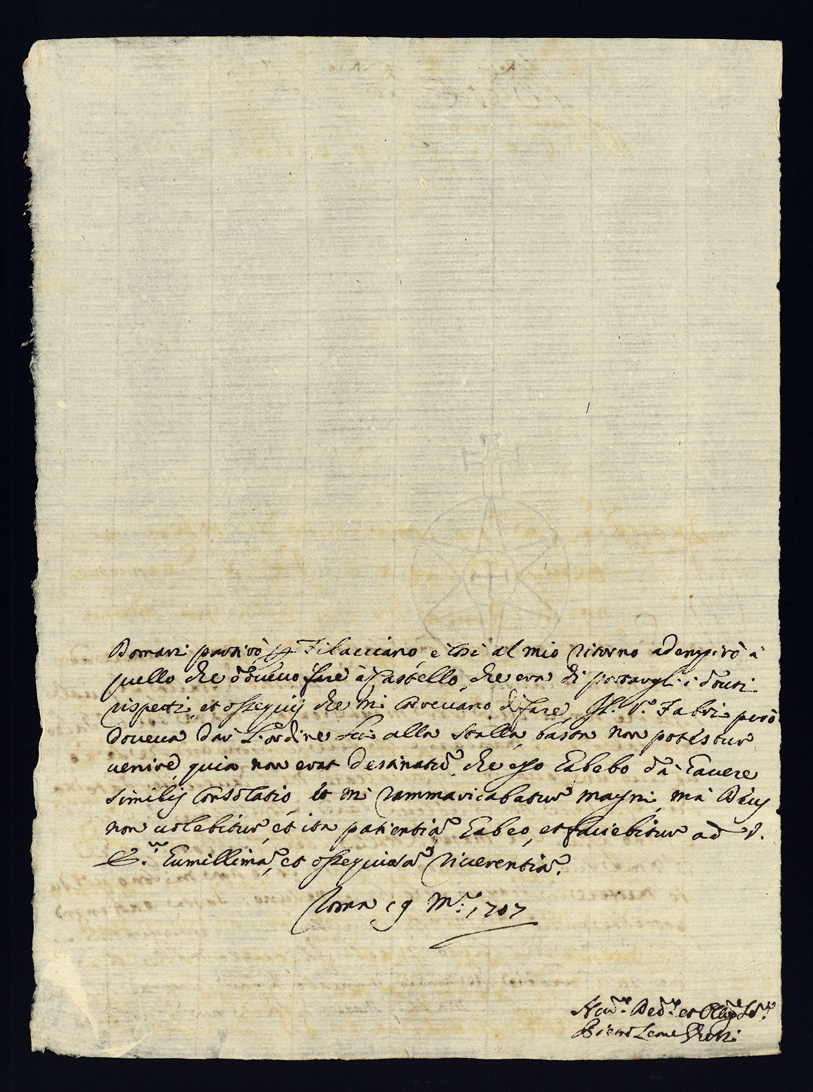 Domani partirò per Filacciano, e così al mio ritorno adempirò à
quello che dovevo fare à Castello, che era di portargli i dovuti
rispetti, et ossequij che mi dovevano di fare, Il S.r Fabri però
doveva dar l'ordine alla stalla non potestur
venire, quia non erat destinatio, che ego habebo dà havere
similij Consolatio, Io mi rammaricabatur magni, mà Deus
non volebitur, et ita patientia habeo, et faciebitur ad V.
E. humillima, et ossequiosa riverentia.
Roma 19 M. 1707
Hu.mo Dev.mo et
Pietro Leone